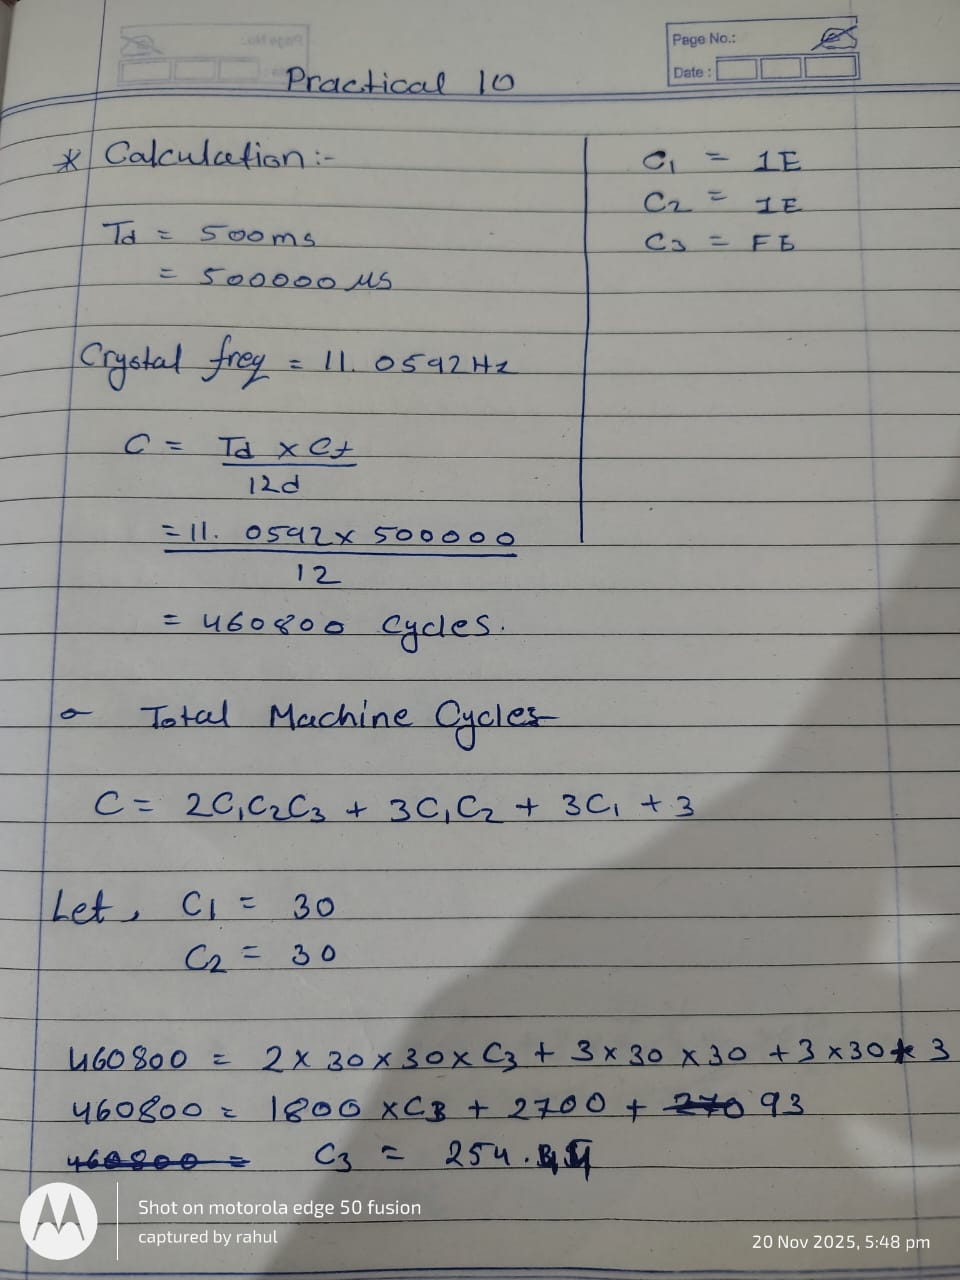 Page No.:
Date :
Practical 10
* Calculation :-
Td = 500ms
= 500000 μs
Crystal freq = 11.0592Hz
C = Td x Cf
12d
= 11.0592 x 500000
12
= 460800 Cycles.
C1 = 1E
C2 = 1E
C3 =
- Total Machine Cycles
C = 2C1C2C3 + 3C1C2 + 3C1 + 3
Let, C1 = 30
C2 = 30
460800 = 2 x 30 x 30 x C3 + 3 x 30 x 30 + 3 x 30 + 3
460800 = 1800 x C3 + 2700 + 93
C3 = 254.
Shot on motorola edge 50 fusion
captured by rahul
20 Nov 2025, 5:48 pm